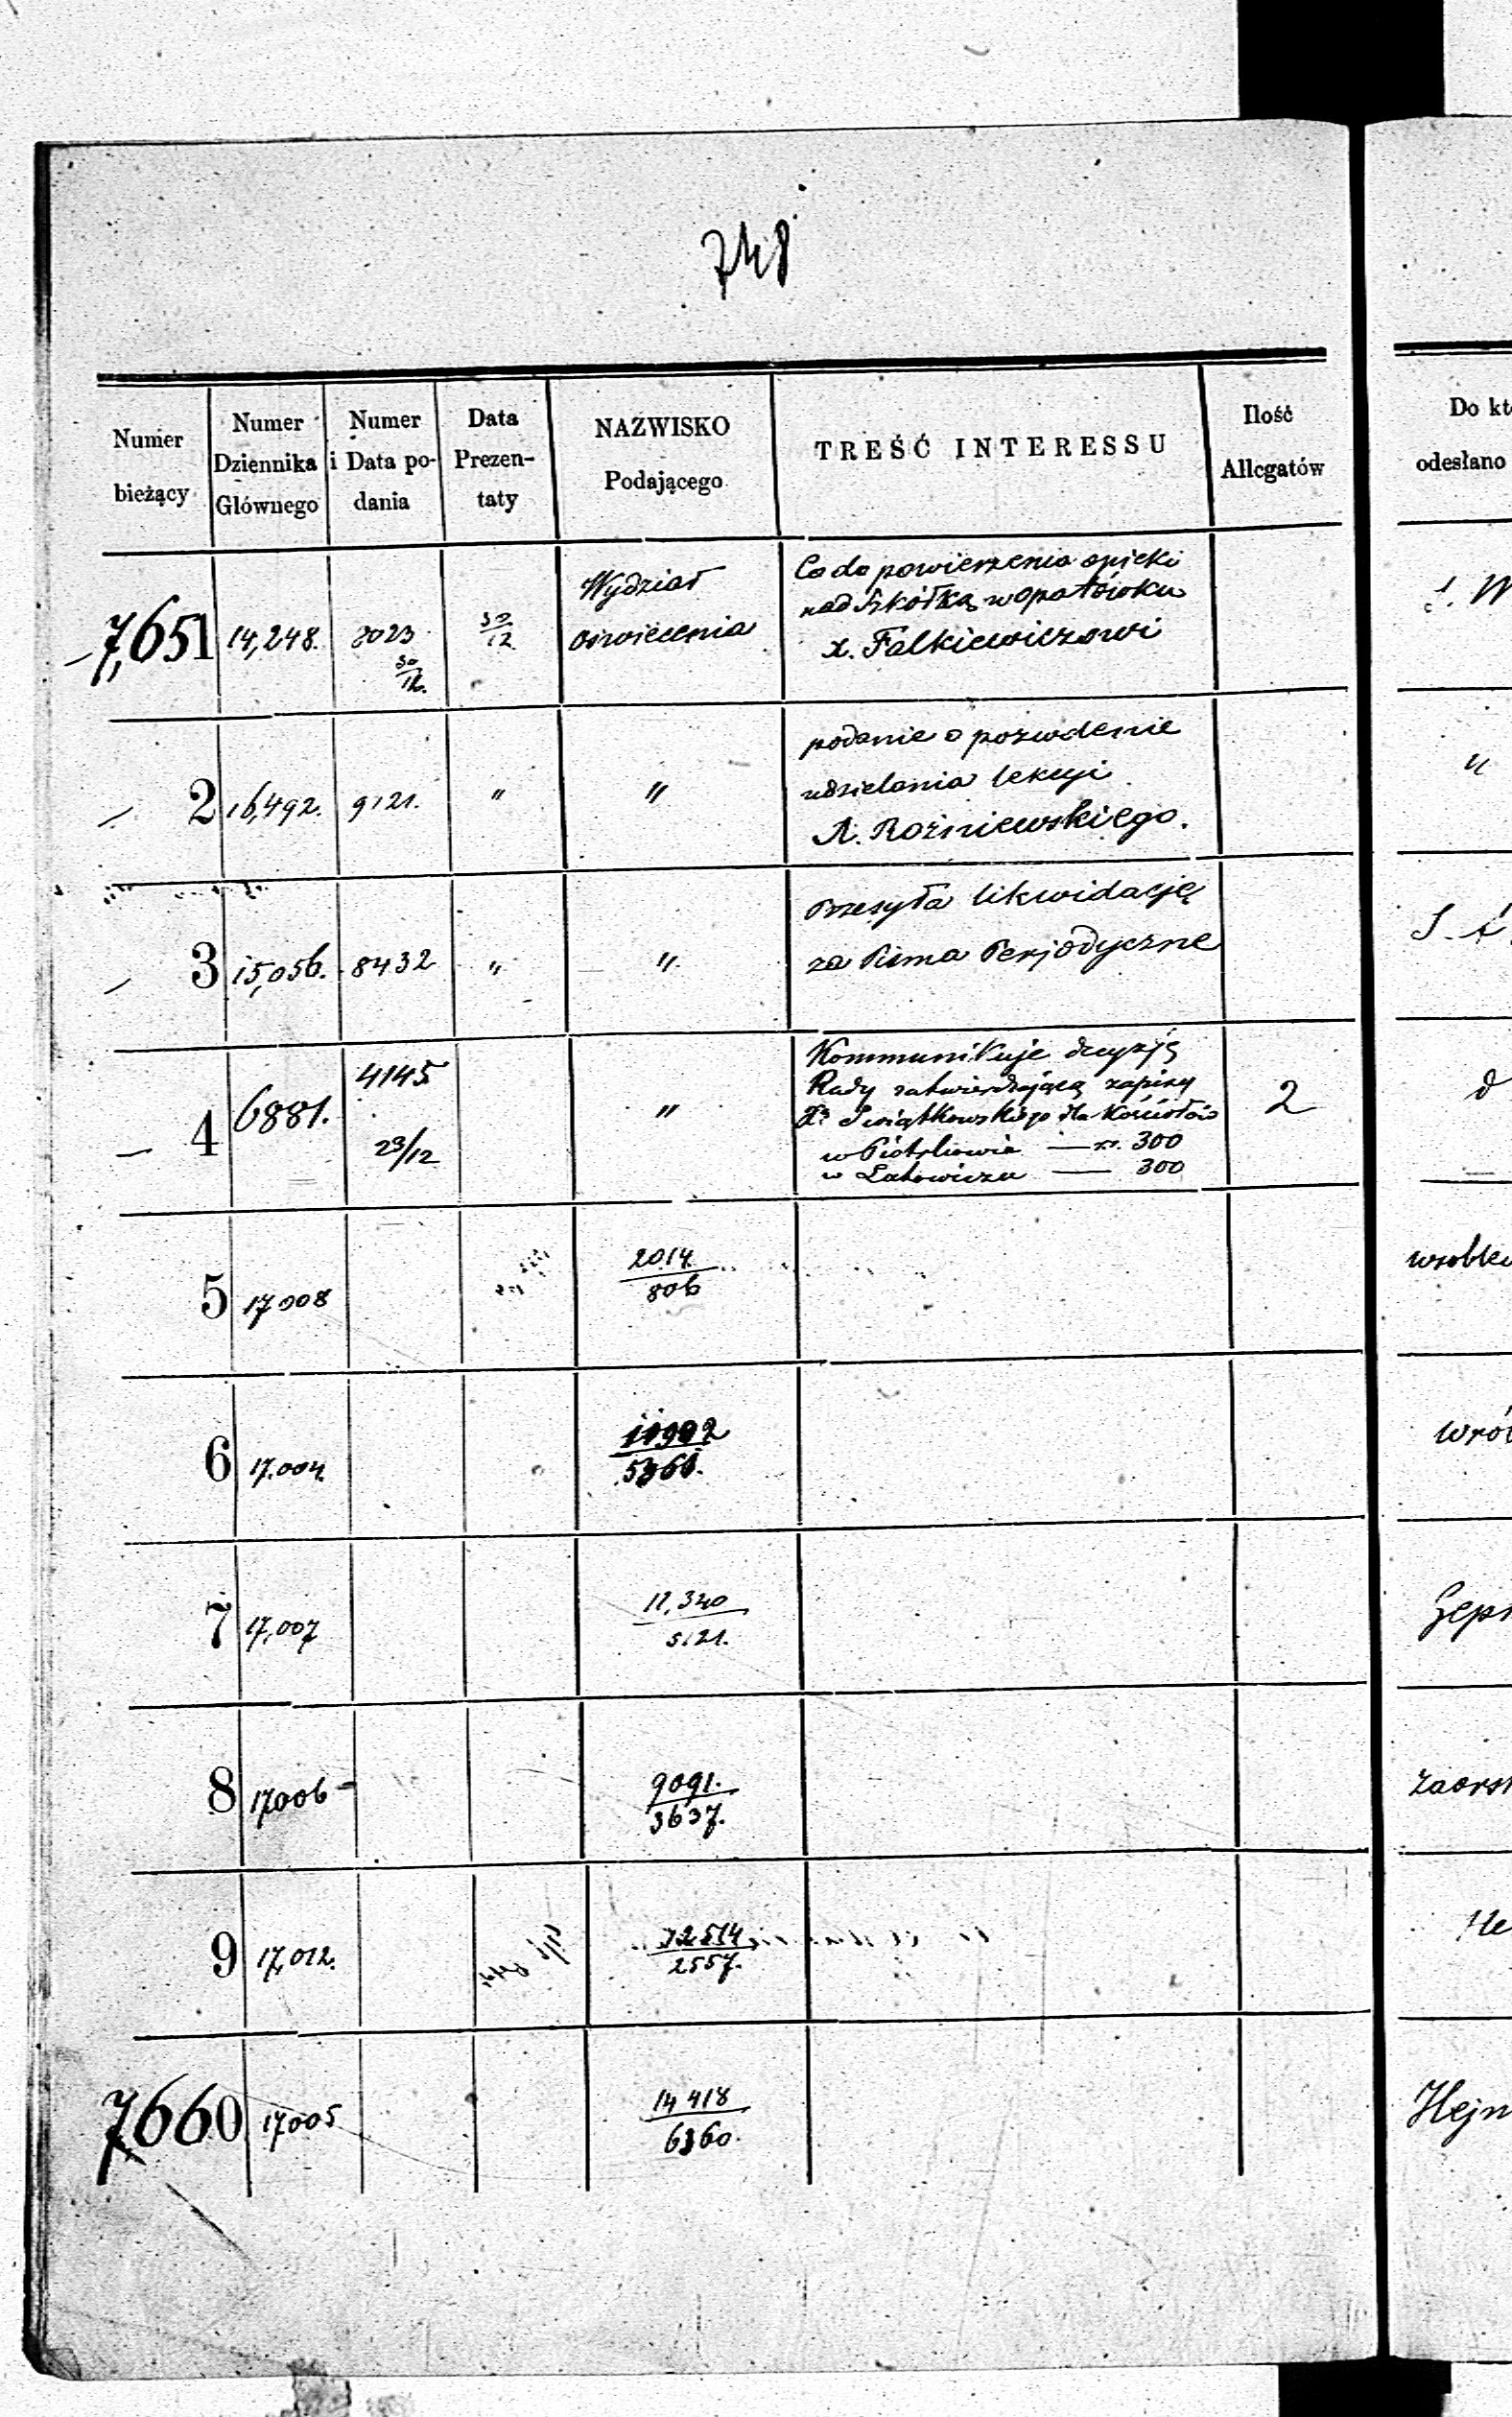 748
Numer bieżący
Numer Dziennika Głównego
Numer i Data po-dania
Data Prezen-taty
NAZWISKO Podającego
TREŚĆ INTERESSU
Ilość Allegatów
Do kt
odesłano
7,651 14,248. 30/12 Wydział oświecenia
Co do powierzenia opieki
nad Szkółką w opatówku
x. Falkiewiczowi
2 16,492. 9121. " "
podanie o pozwolenie
udzielania lekcyi
A. Rożniewskiego.
"
3 15,056. 8432 " "
Przesyła likwidacyę
za Pisma Perjodyczne
4 6881. 4145 23/12 "
Kommunikuje decyzją
Rady zatwierdzającą zapisy
Świątkowskiego dla Kościołów
w 300
w 300
2
5 17008 2014/806
6 17.004. 11992
wrób
7 17,007 11,340/5121.
8 17006 9091./3637.
9 17,012. 2557.
He
7660 17005 14418/6360.
Hejn